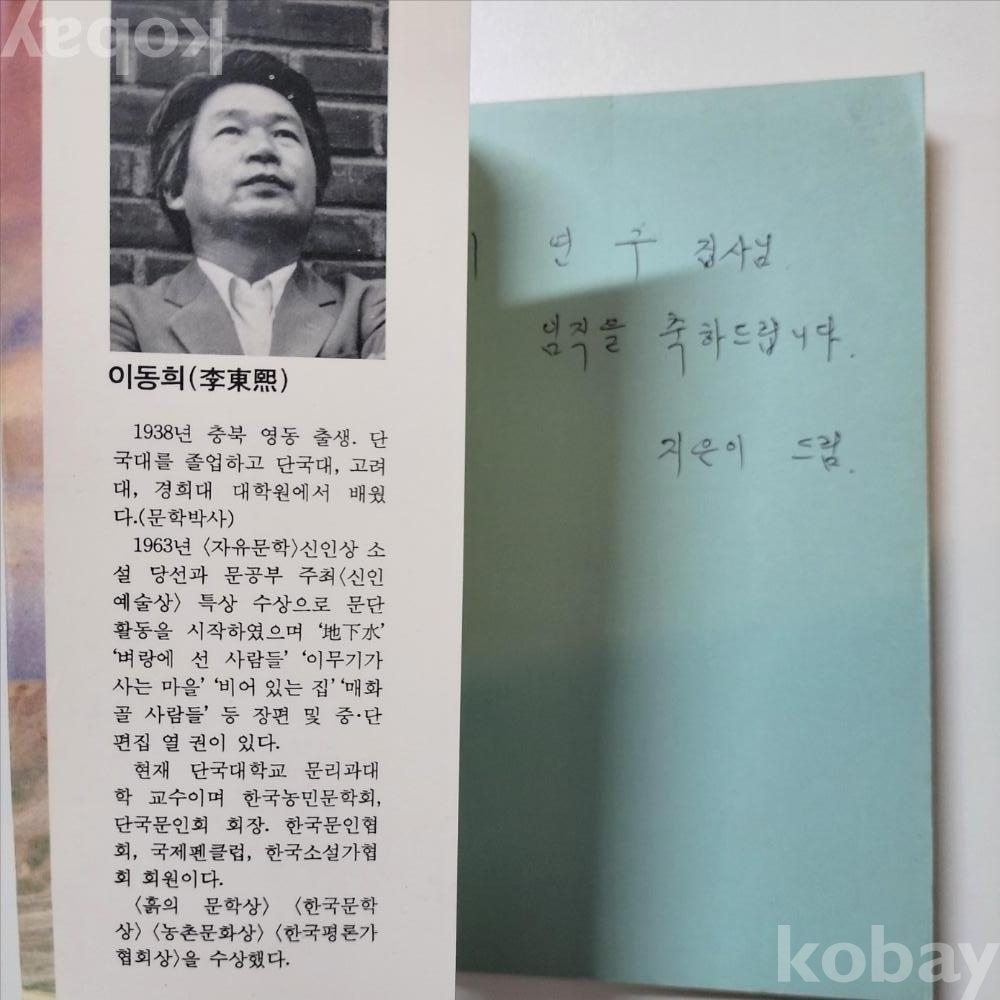 kobay
이동희(李東熙)
1938년 충북 영동 출생. 단
국대를 졸업하고 단국대, 고려
대, 경희대 대학원에서 배웠
다.(문학박사)
1963년 〈자유문학〉신인상 소
설 당선과 문공부 주최〈신인
예술상〉 특상 수상으로 문단
활동을 시작하였으며 ‘地下水’
‘벼랑에 선 사람들’ ‘이무기가
사는 마을’ ‘비어 있는 집’ ‘매화
골 사람들’ 등 장편 및 중·단
편집 열 권이 있다.
현재 단국대학교 문리과대
학 교수이며 한국농민문학회,
단국문인회 회장. 한국문인협
회, 국제펜클럽, 한국소설가협
회 회원이다.
〈흙의 문학상〉 〈한국문학
상〉 〈농촌문화상〉 〈한국평론가
협회상〉을 수상했다.
집사님.
임직을 축하드립니다.
지은이 드림.
kobay